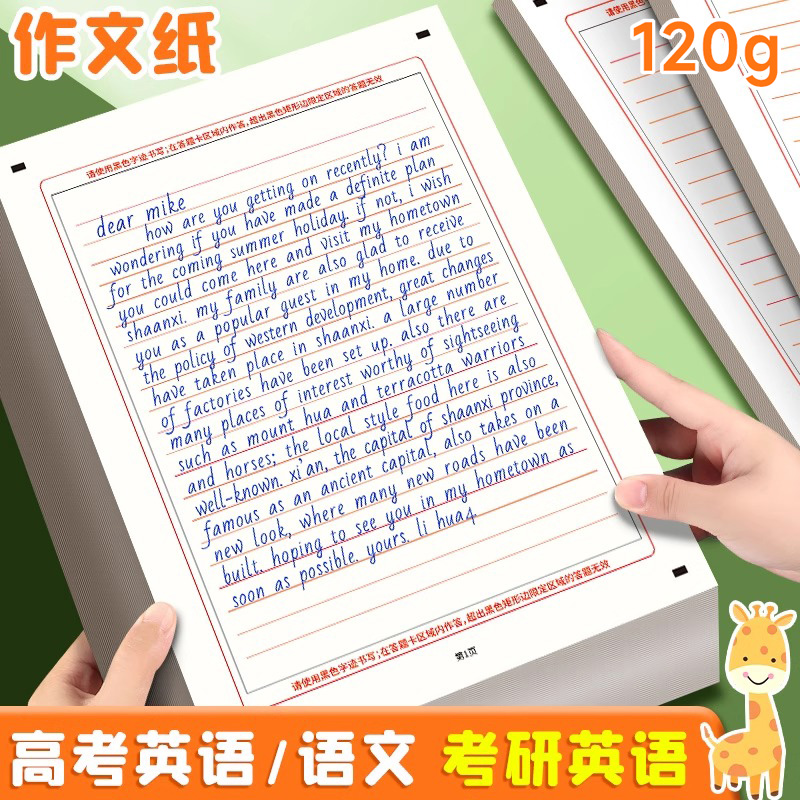 作文纸
120g
请使用黑色字迹书写；在答题卡区域内作答，超出黑色矩形边限定区域的答题无效
dear mike
how are you getting on recently? i am
wondering if you have made a definite plan
for the coming summer holiday. if not, i wish
you could come here and visit my hometown
shaanxi. my family are also glad to receive
you as a popular guest in my home. due to
the policy of western development, great changes
have taken place in shaanxi. a large number
of factories have been set up. also there are
many places of interest worthy of sightseeing
such as mount hua and terracotta warriors
and horses; the local style food here is also
well-known. xi'an, the capital of shaanxi province,
famous as an ancient capital, also takes on a
new look, where many new roads have been
built. hoping to see you in my hometown as
soon as possible. yours. li hua4
请使用黑色字迹书写；在答题卡区域内作答，超出黑色矩形边限定区域的答题无效
第1页
请使用黑
高考英语/语文 考研英语